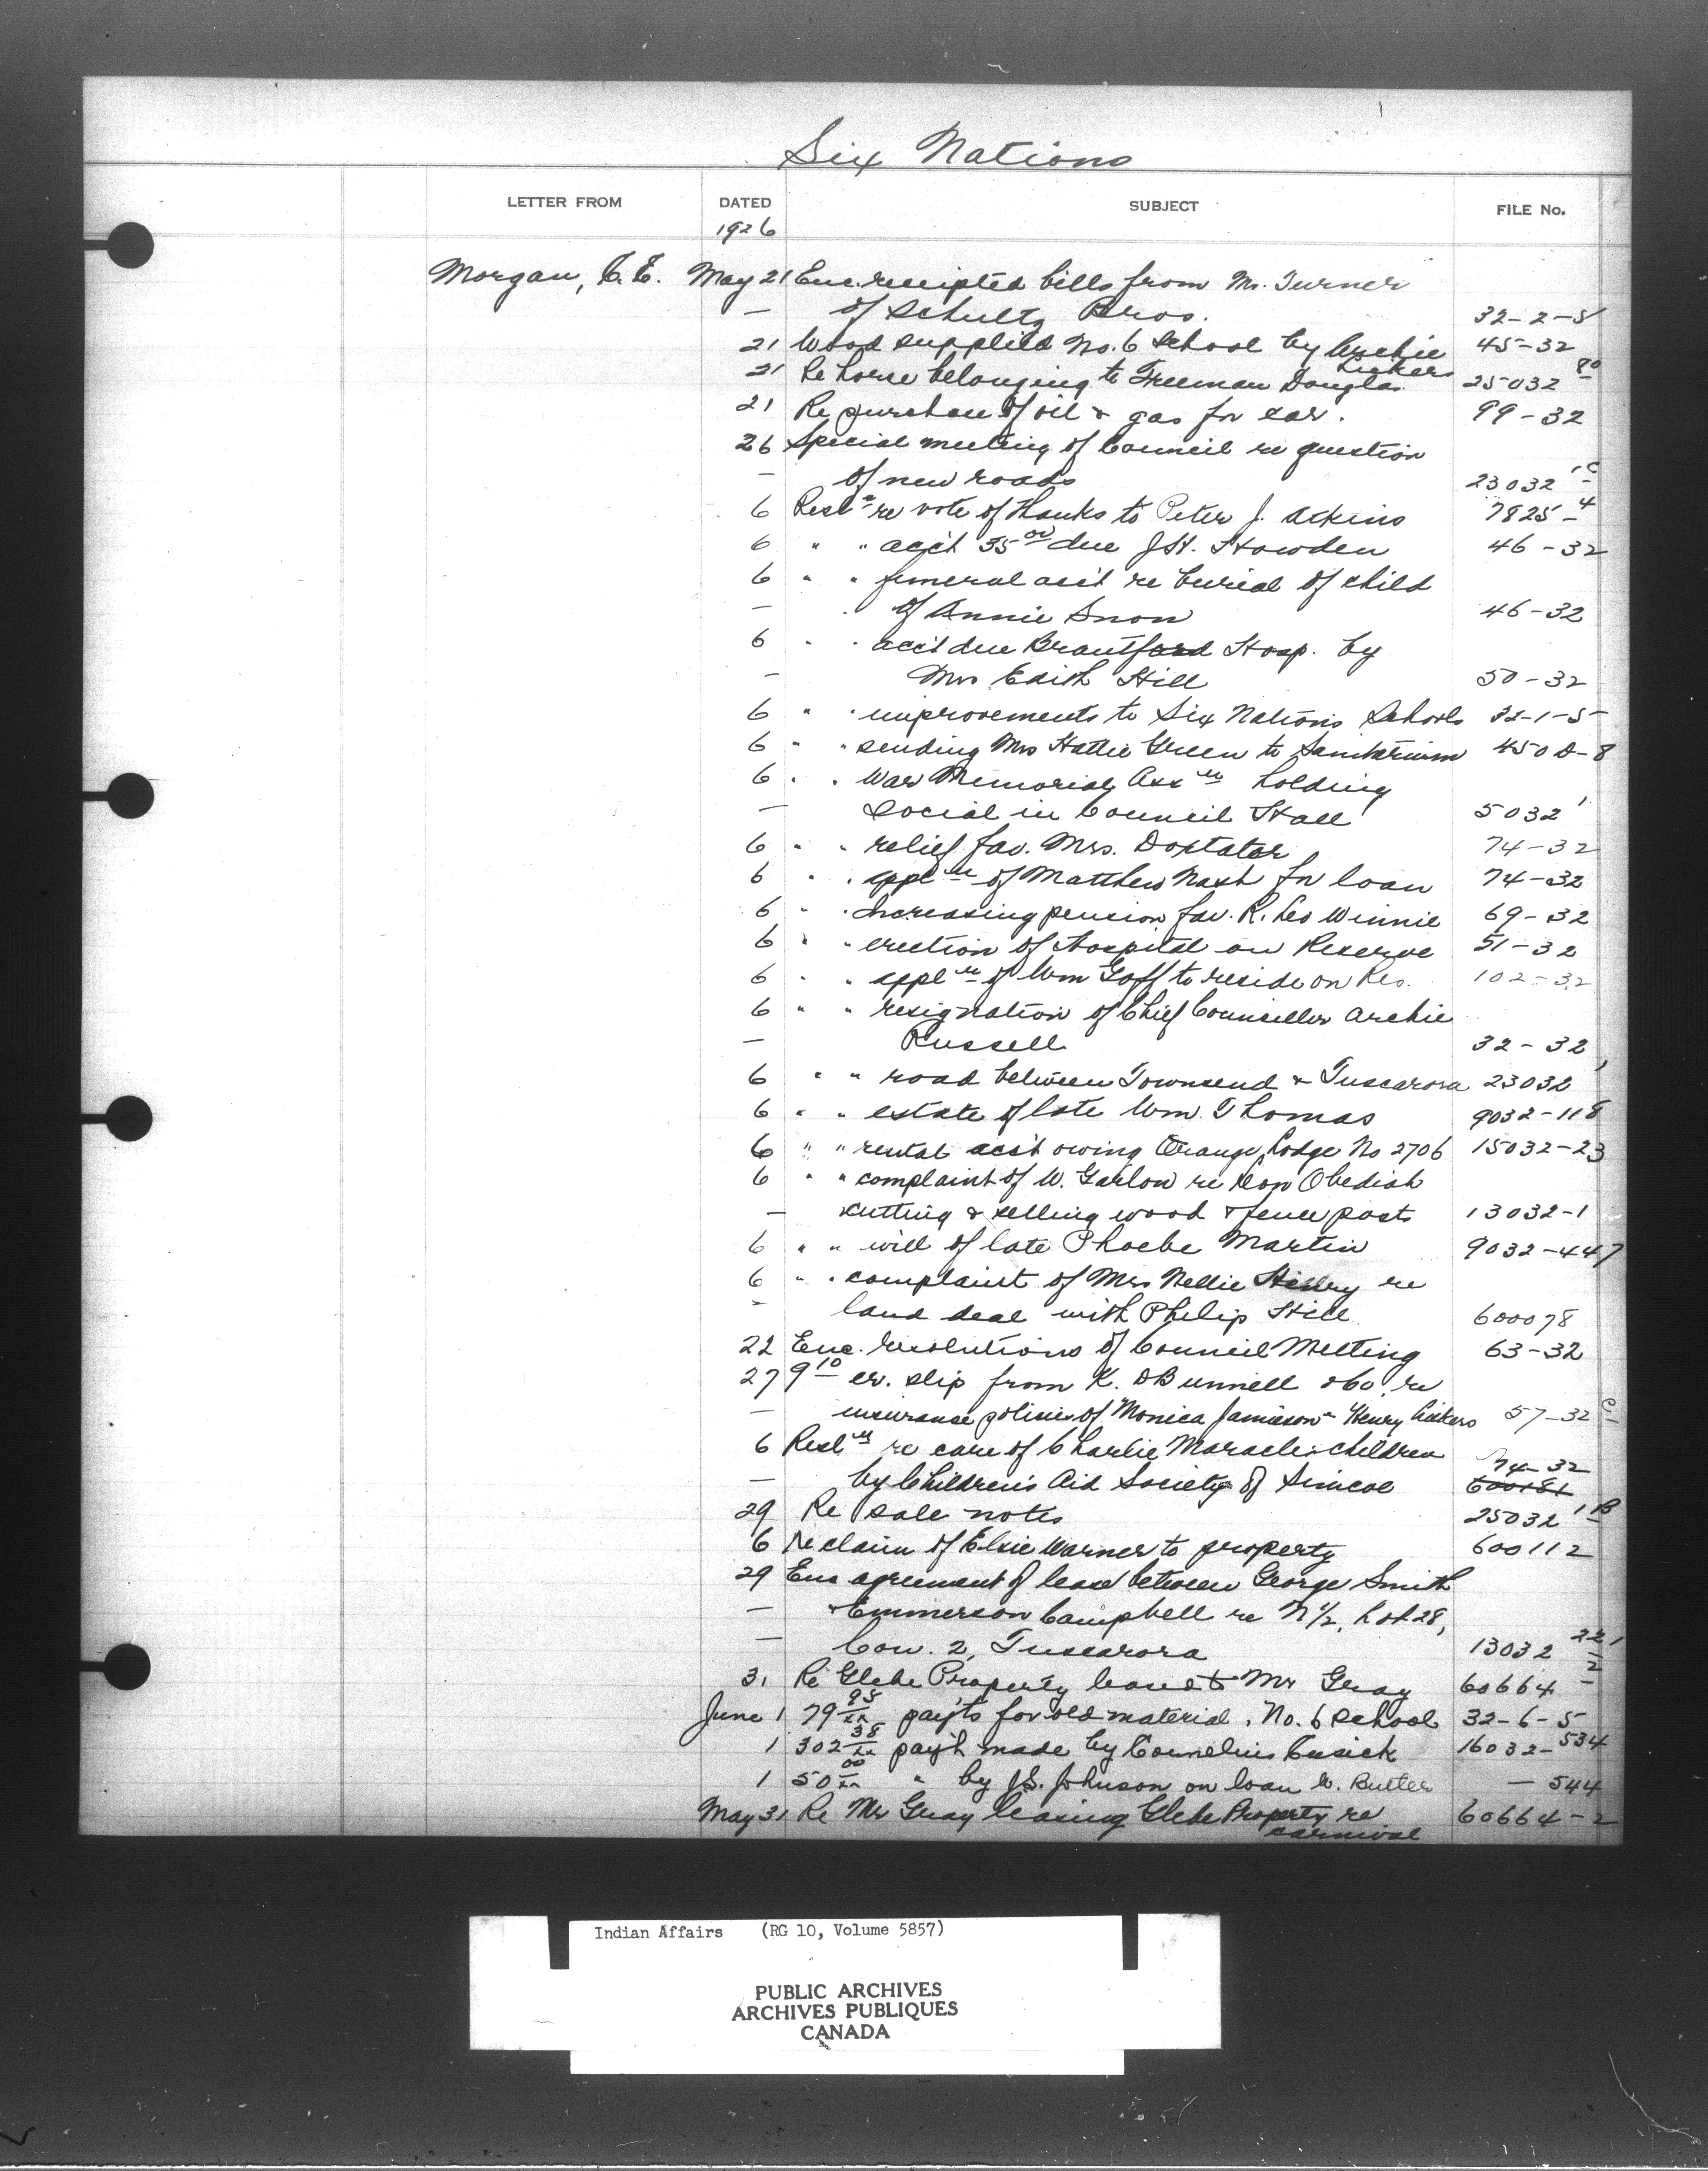 Six Nations
LETTER FROM DATED SUBJECT FILE No.
1926
Morgan, C.E. May 21 Enc. receipted bills from Mr. Turner
— of Schultz Bros. 32-2-5
21 Wood supplied No. 6 School by Archie Lickers 45-32
21 Re horse belonging to Freeman Douglas 25032 80
21 Re purchase of oil & gas for car. 99-32
26 Special meeting of Council re question
— of new roads 23032 1C
6 Resln re vote of thanks to Peter J. Atkins 7825-4
6 " " acc't 35 00 due J.H. Howden 46-32
6 " " funeral acc't re burial of child
— " of Annie Snow 46-32
6 " " acc't due Brantford Hosp. by
— Mrs Edith Hill 50-32
6 " " improvements to Six Nations Schools 32-1-5
6 " " sending Mrs Hattie Green to Sanitarium 450D-8
6 " " War Memorial Assn holding
— Social in Council Hall 5032 1
6 " " relief fav. Mrs. Doxtator 74-32
6 " " appln of Matthew Nash for loan 74-32
6 " " Increasing pension fav. R. Leo Winnie 69-32
6 " " erection of Hospital on Reserve 51-32
6 " " appln of Wm Goff to reside on Res. 102-32
6 " " resignation of Chief Councillor Archie
— Russell 32-32
6 " " road between Townsend & Tuscarora 23032 1
6 " " estate of late Wm. Thomas 9032-118
6 " " rental acc't owing Orange Lodge No 2706 15032-23
6 " " complaint of W. Garlow re Obediah
— cutting & selling wood & fence posts 13032-1
6 " " will of late Phoebe Martin 9032-447
6 " " complaint of Mrs Nellie Henry re
— land deal with Philip Hill 600078
22 Enc. resolutions of Council Meeting 63-32
27 9 10 cr. slip from K. D Bunnell & Co. re
— insurance policies of Monica Jamieson & Henry Lickers 57-32 C
6 Resln re care of Charlie Maracle's children 74-32
— by Children's Aid Society of Simcoe 600181
29 Re sale notes 25032 1B
6 Re claim of Elsie Warner to property 600112
29 Enc agreement of lease between George Smith
— & Emmerson Campbell re N 1/2, Lot 28,
— Con. 2, Tuscarora 13032 221
31 Re Glebe Property leased to Mr Gray 60664 2
June 1 79 95/xx paym'ts for old material, No. 6 School 32-6-5
1 302 38/xx paym't made by Cornelius Cusick 16032-534
1 50 00/xx " by J.S. Johnson on loan W. Butler — 544
May 31 Re Mr Gray leasing Glebe Property re carnival 60664-2
Indian Affairs (RG 10, Volume 5857)
PUBLIC ARCHIVES
ARCHIVES PUBLIQUES
CANADA